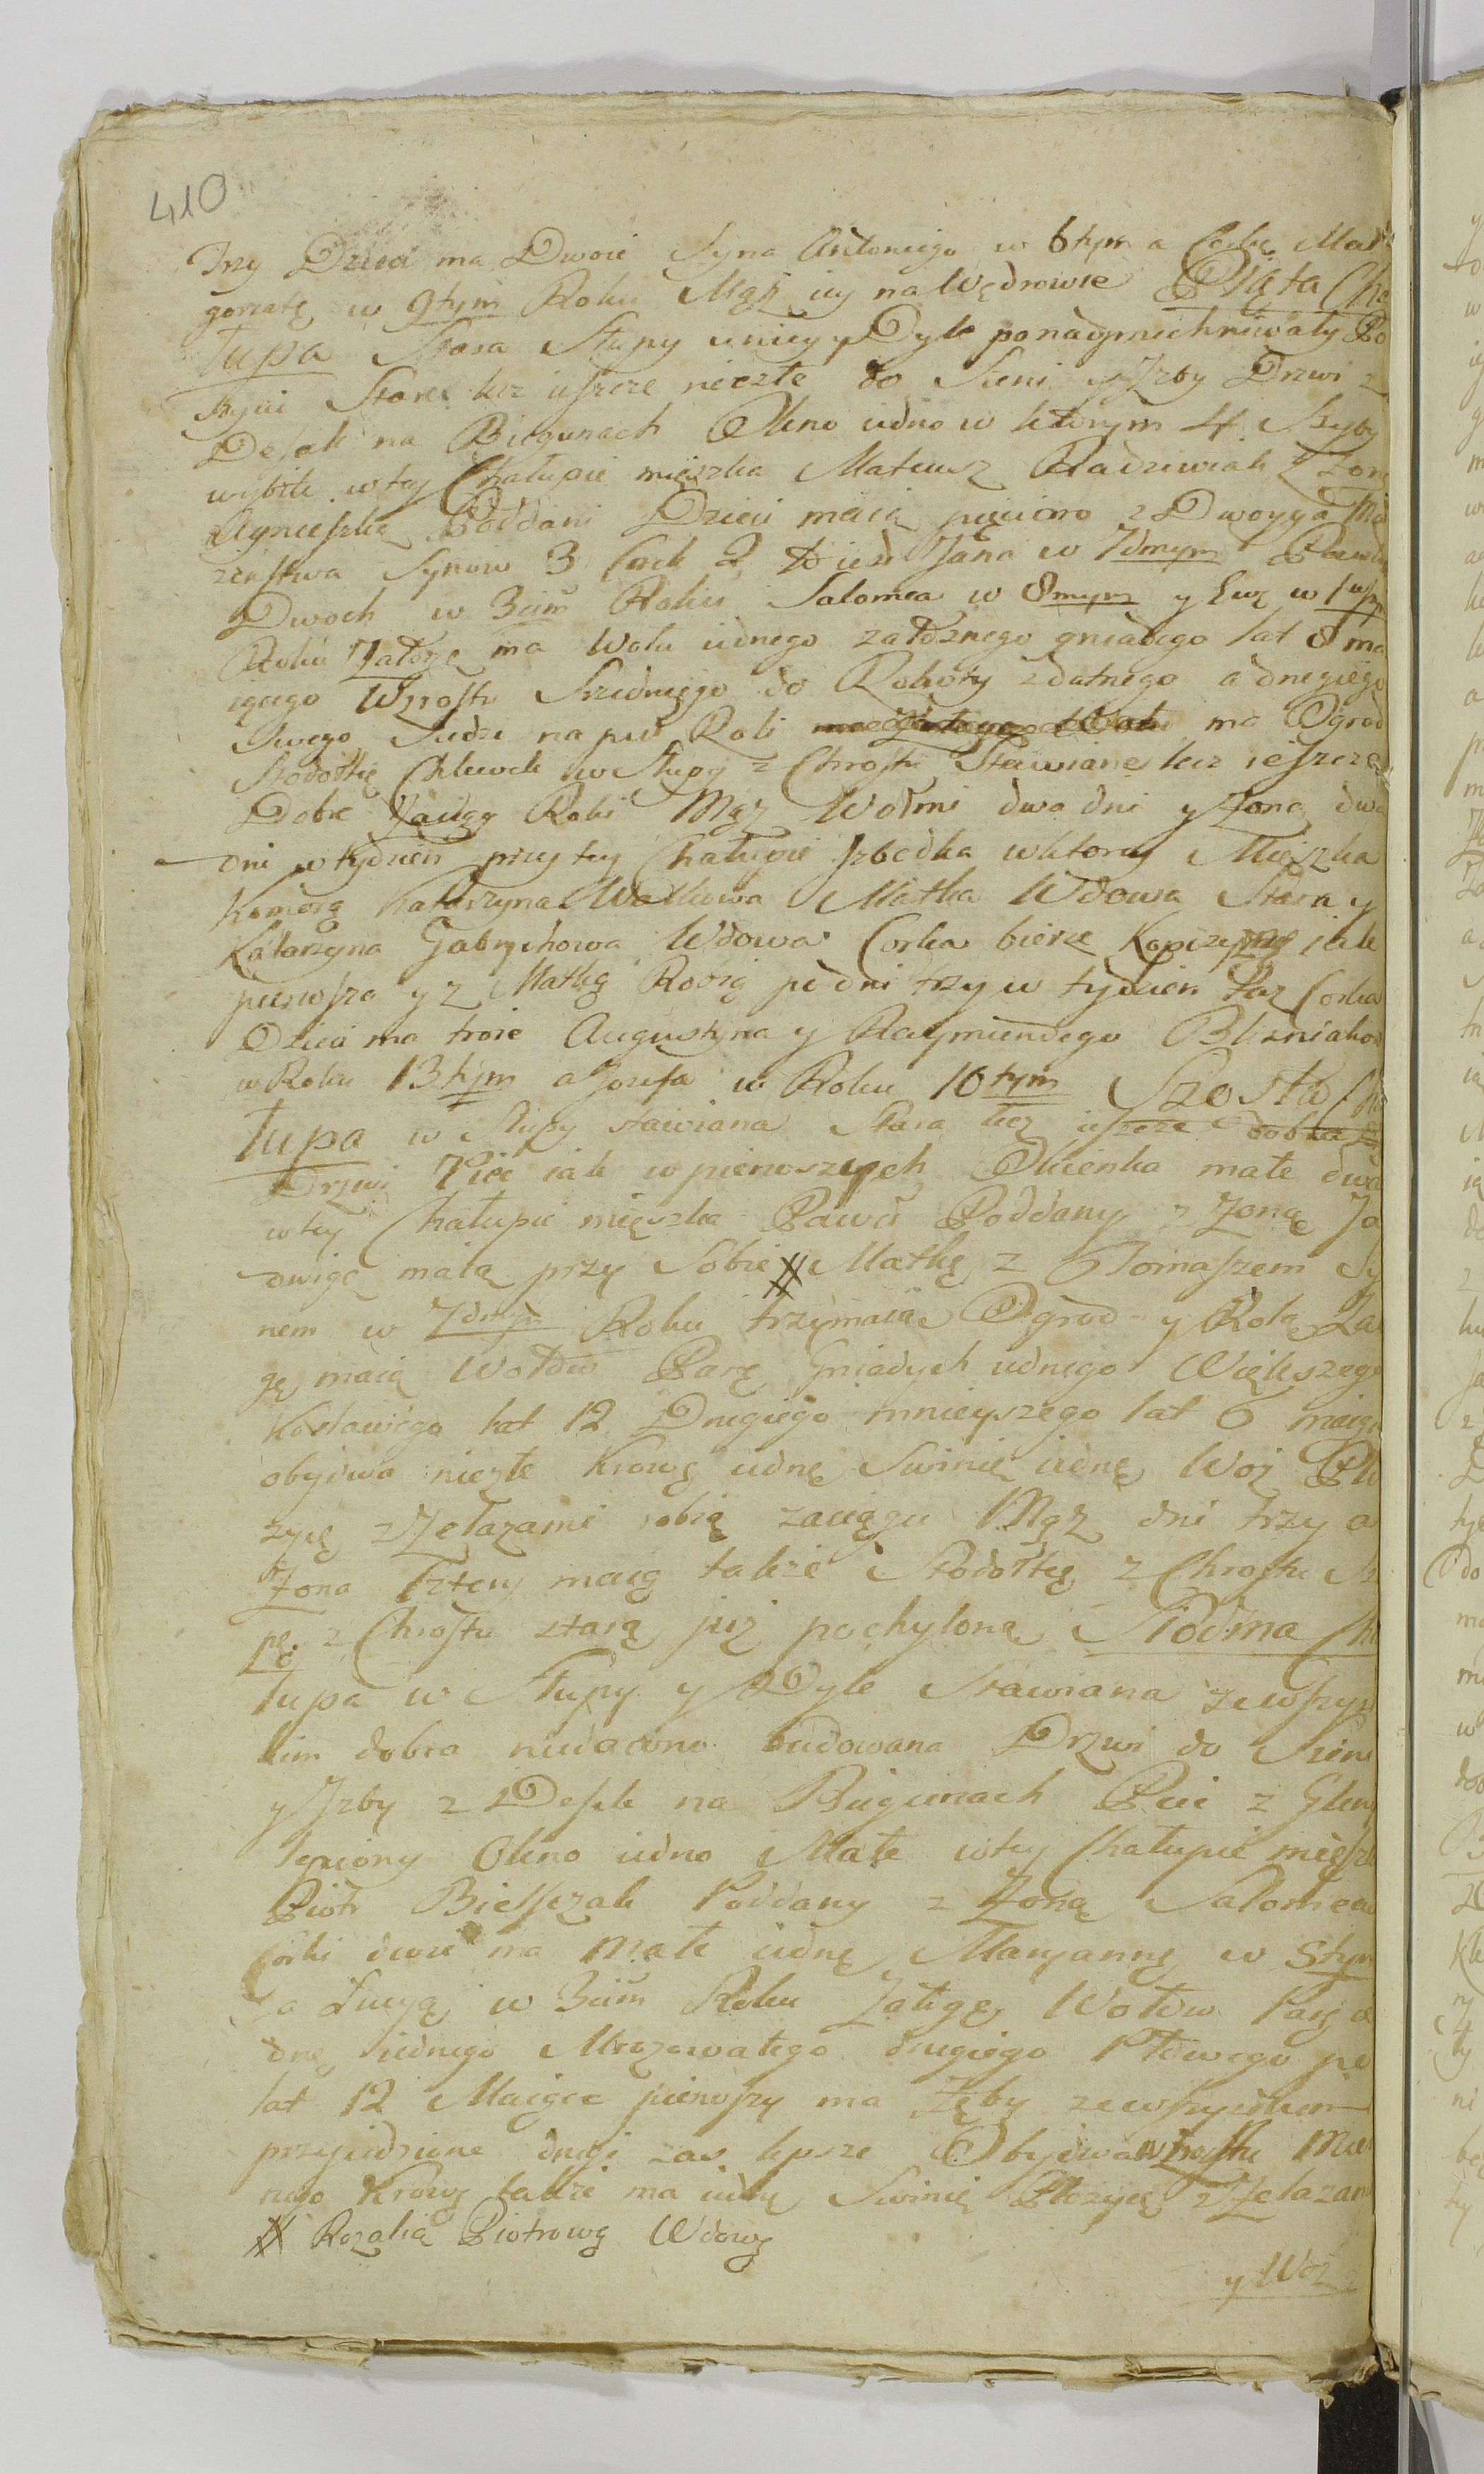 410
Trzy Dzieci ma Dwoie Syna Antoniego w 6tym a Corkę Mał
gorzatę w 9tym Roku Mąż iey na Wędrowce Piąta Cha
łupa Stara Słupy u niey y Dyle ponadpruchniwały Po
szycie Stare lecz ieszcze niezłe do Sieni y Jzby Drzwi z
Desek na Biegunach Okno iedno w ktorym 4 Szyby
wybite w tey Chałupie mięszka Mateusz Radziwiak z Zoną
Agnieszką Poddani Dzieci maią pięcioro z Dwoyga Mał
zenstwa Synow 3 Corek 2 Jana w 7dmym Pawła
Dwoch w 3cim Roku Salomea w 8mym y Ewę w 1wszym
Roku Załogę ma Wołu iednego gniadego lat 8 ma
iącego Wzrostu Srzedniego do Roboty zdatnego a drugiego
Swego Siedzi na puł Roli ma Ogrod
Stodołkę Chlewek w Słupy z Chrostu Stawiane lecz ieszcze
Dobre Zaciąg Robi Mąż Wołmi dwa dni y Zona dwa
dni w tydzien przy tey Chałupie Jzbedka w ktorey Mięszka
Komorą Katarzyna Matka Wdowa Stara y
Katarzyna Gabrychowa Wdowa Corka bierze iak
pierwsza y z Matką Robią po dni trzy w tydzien Taz Corka
Dzieci ma troie Augustyna y Raymundego Blizniakow
w Roku 13tym a Jozefa w Roku 10tym Szosta Cha
łupa w Słupy stawiana Stara lecz ieszcze dobra
Drzwi Piec iak w pierwszych Okienka małe dwa
w tey Chałupie mięszka Paweł Poddany z Zoną Ja
dwigą maią przy Sobie # Matkę z Tomaszem Sy
nem w 7dmym Roku trzymaią Ogrod y Rolą Zało
gę maią Wołow Parę Gniadych iednego Większego
Kosławego lat 12 Drugiego mnieyszego lat 6 maiąc
obydwa niezłe Krowę iednę Swinię iednę Woz Płu
zycę z Zelazami robią zaciągu Mąż dni trzy a
Zona Cztery maią takze Stodołkę z Chrostu
pę z Chrostu starą już pochyloną Siodma Cha
łupa w Słupy y Dyle Stawiana ze wszyst
kim dobra niedawno budowana Drzwi do Sieni
y Jzby z Desek na Biegunach Piec z Gliny
lepiony Okno iedno Małe w tey Chałupie mięszka
Piotr Bielszczak Poddany z Zoną Salomeą
Corki dwie ma Małe iednę Maryannę w 5tym
a Łucyą w 3cim Roku Załogę Wołow Parę ie
dnę iednego Mrozowatego drugiego Płowego po
lat 12 Maiące pierwszy ma Zęby ze wszystkiem
przyiedzione drugi zas lepsze Obydwa wzrostu Mier
nego Krowę takze ma iednę Swinię Płozycę z Zelazami
# Rozalią Piotrową Wdowę
y Woz